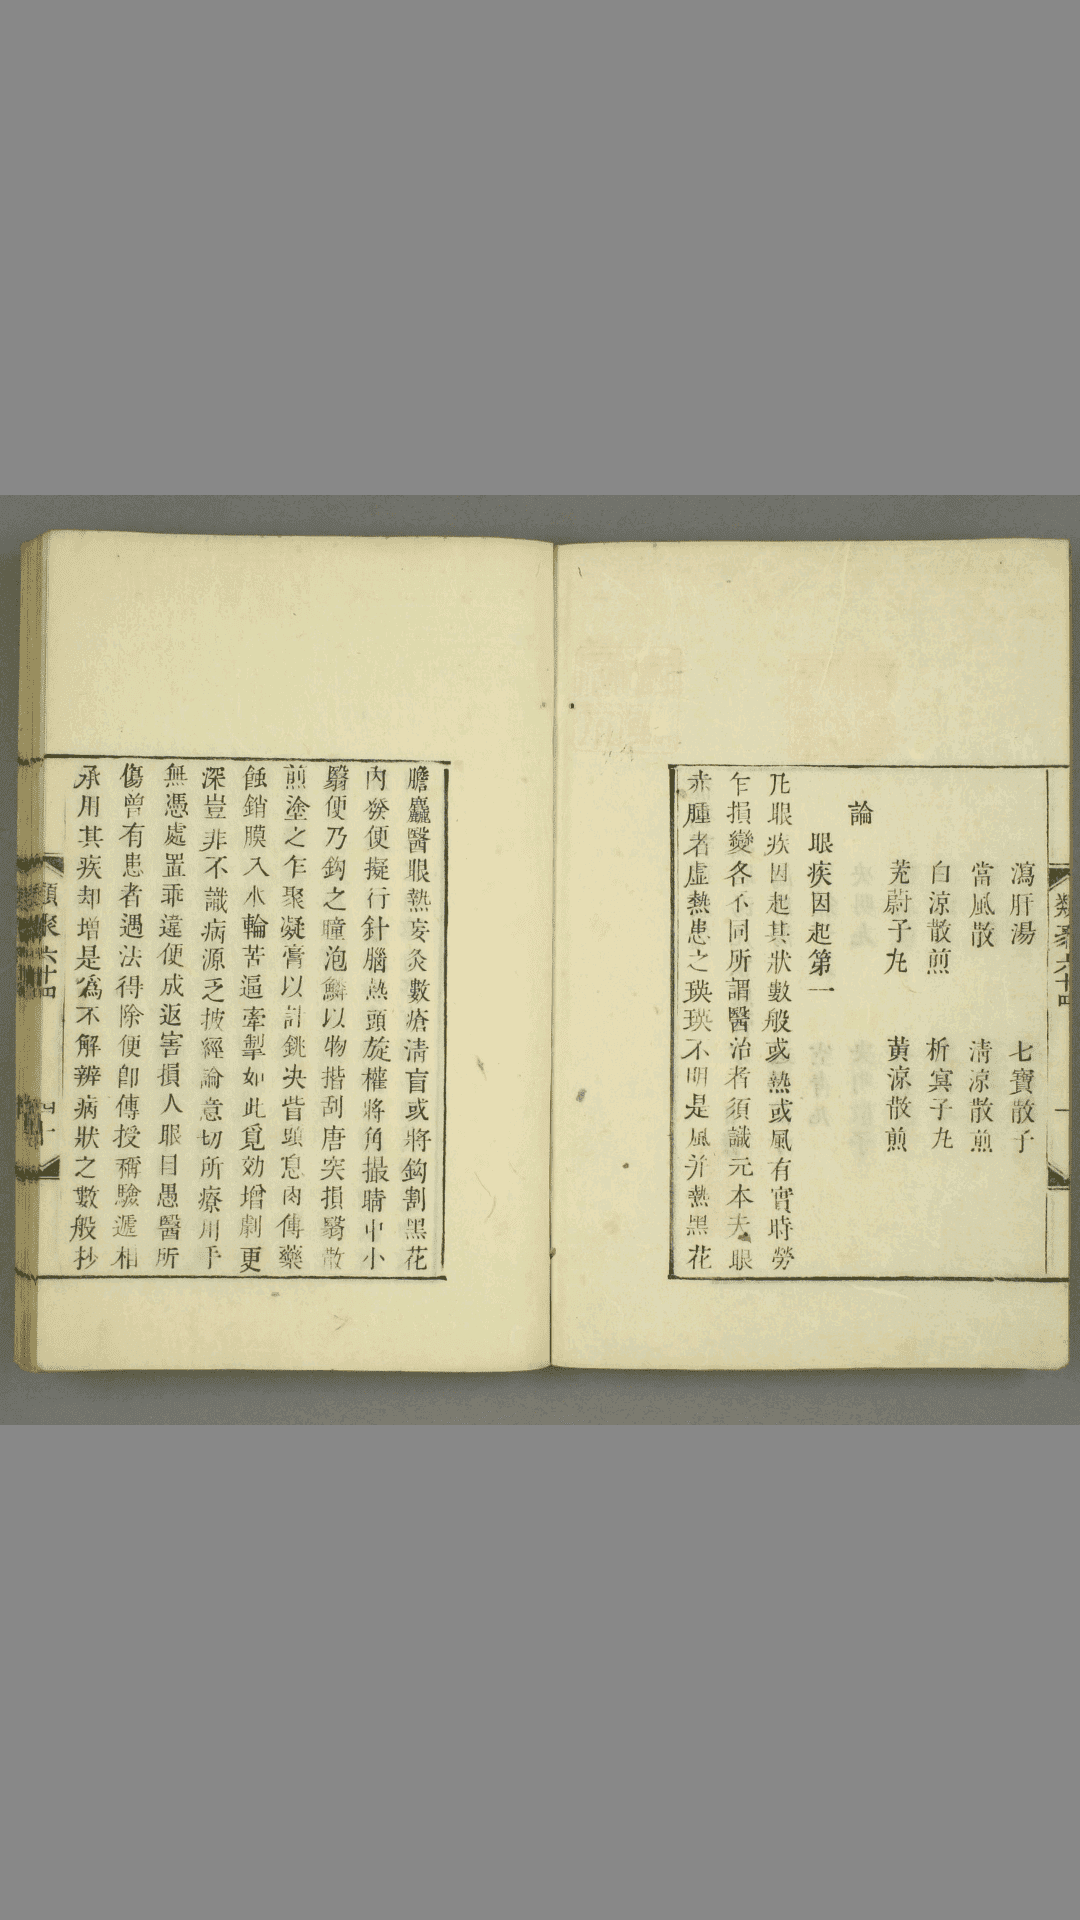 類聚六十四
一
瀉肝湯　七寶散子
當風散　淸涼散煎
白涼散煎　析蓂子丸
茺蔚子丸　黃涼散煎
論
眼疾因起第一
凡眼疾因起其狀數般或熱或風有實時勞
乍損變各不同所謂醫治者須識元本夫眼
赤腫者虛熱患之瑛瑛不明是風并熱黑花
膽麤醫眼熱妄灸數瘡淸盲或將鈎割黑花
內發便擬行針腦熱頭旋權將角撮睛中小
翳便乃鈎之瞳泡鱗以物揩刮唐突損翳散
煎塗之乍聚凝膏以計銚決眥頭息肉傅藥
蝕銷膜入水輪苦逼牽掣如此覓効增劇更
深豈非不識病源乏披經論意切所療用手
無憑處置乖違便成返害損人眼目愚醫所
傷曾有患者遇法得除便卽傳授稱驗遞相
承用其疾却增是爲不解辨病狀之數般抄
類聚六十四